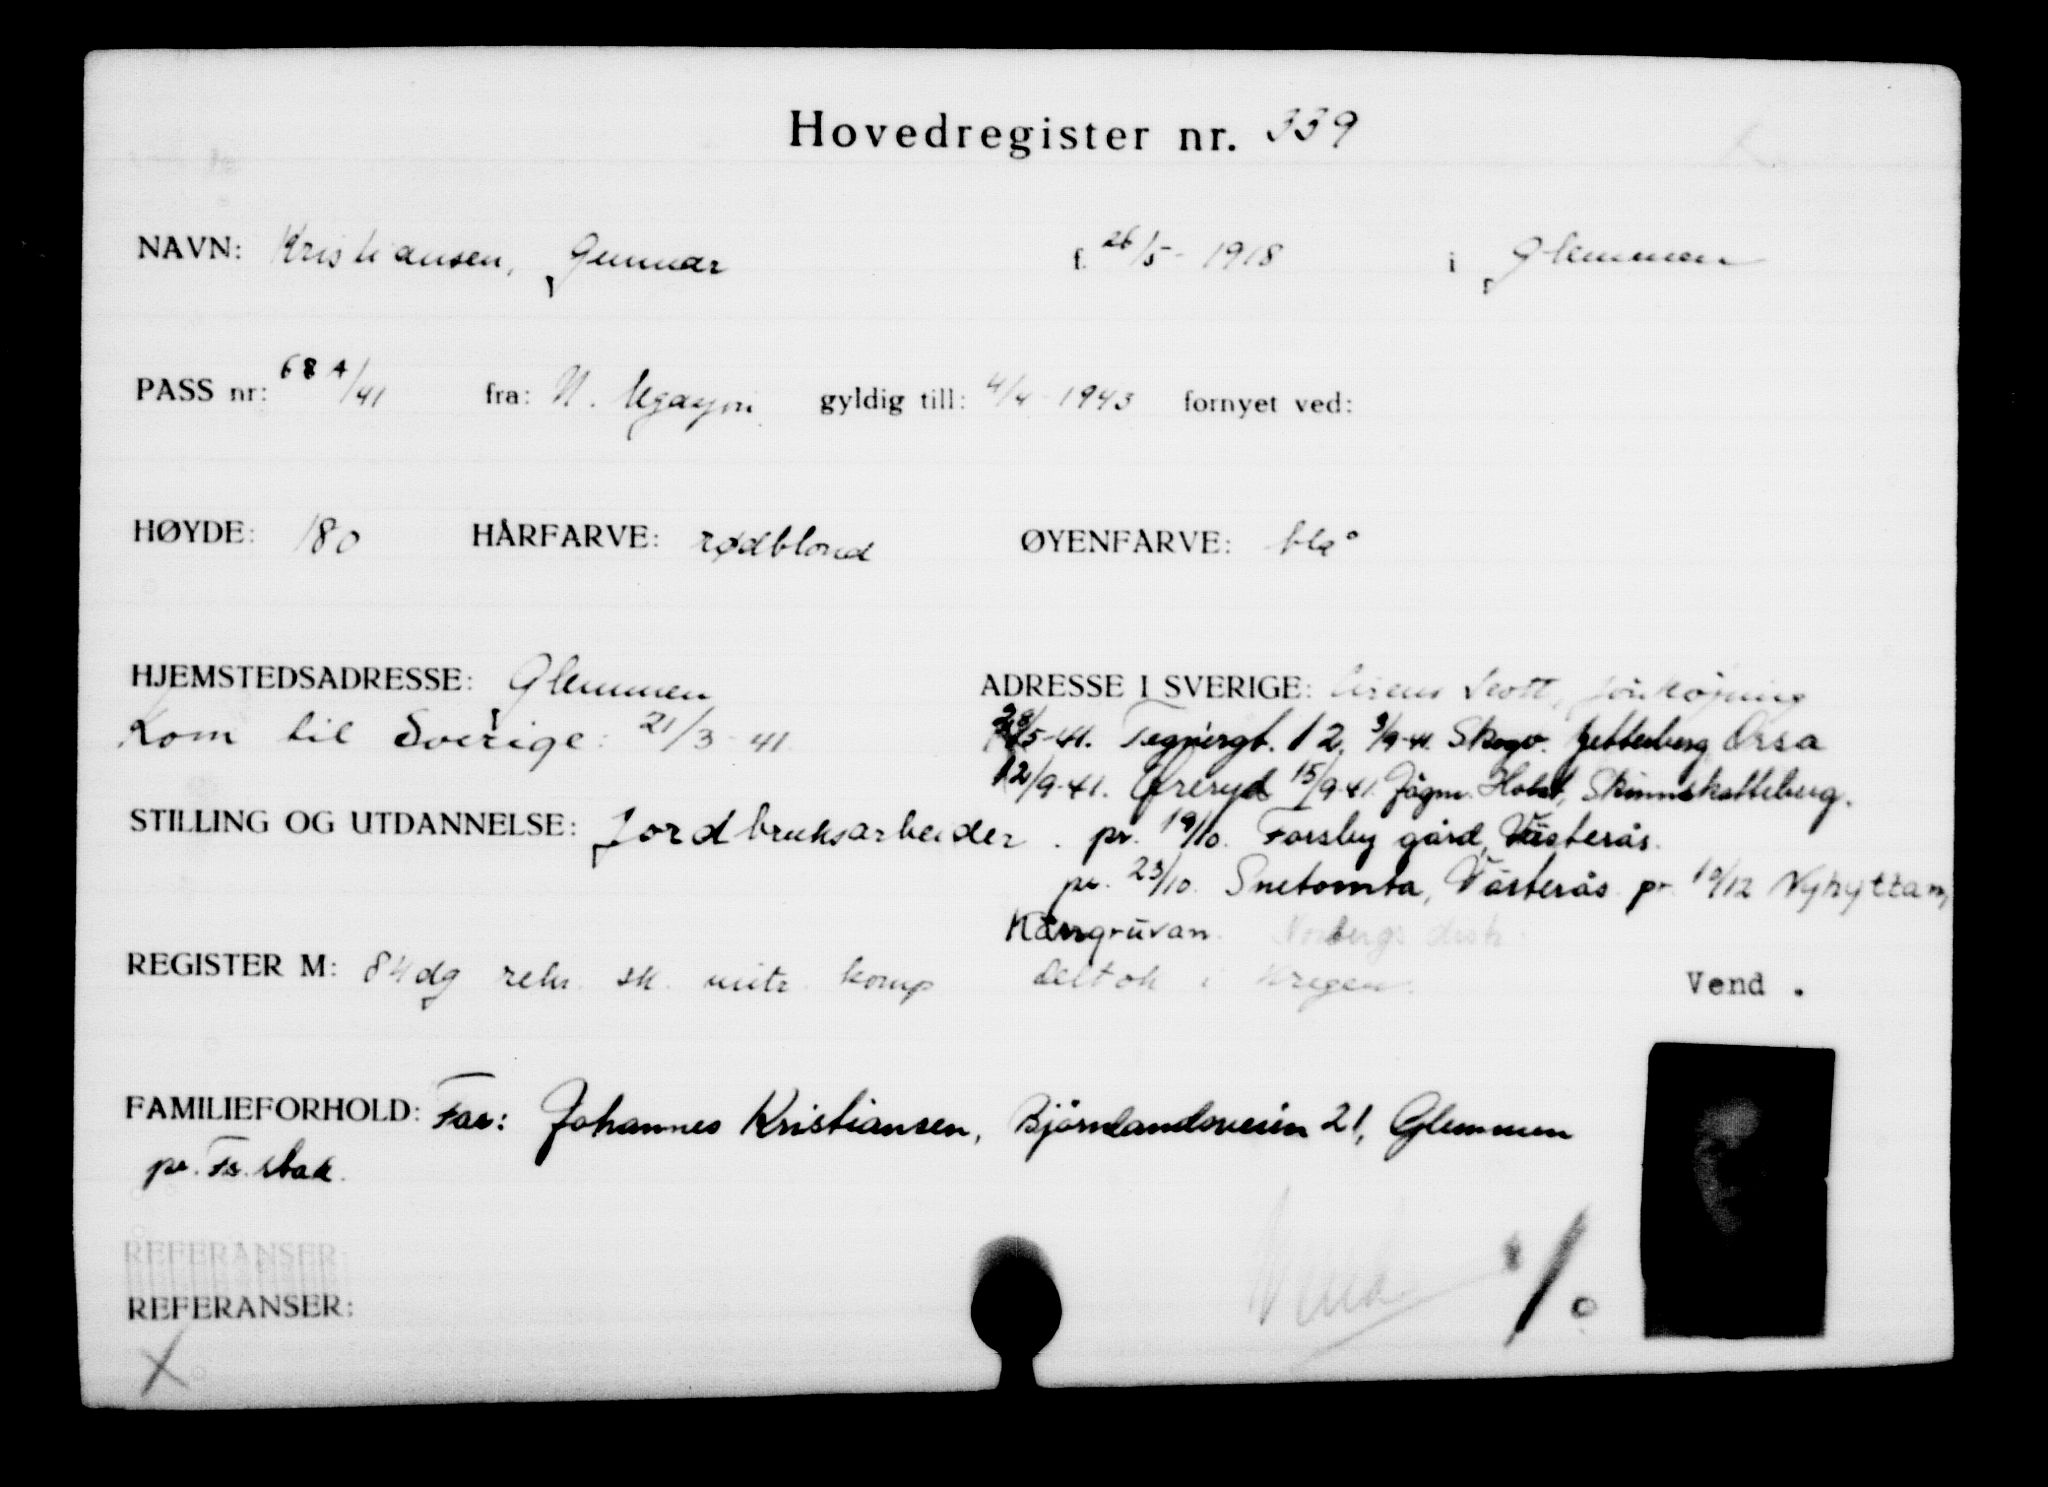 Hovedregister nr. 339
NAVN: Kristiansen, Gunnar f. 26/5 - 1918 i Glemmen
PASS nr: 68 A/41 fra: gyldig till: 4/4 1943 fornyet ved:
HØYDE: 180 HÅRFARVE: rødblond ØYENFARVE: blå
HJEMSTEDSADRESSE: Glemmen ADRESSE I SVERIGE: Jönköping
Kom til Sverige: 21/3 - 41. /5-41. Tegnérgt. 12. 3/9-41. Skogv. Zetterberg Orsa
12/9-41. Öreryd 15/9-41. Jägm. Holst, Skinnskatteberg.
STILLING OG UTDANNELSE: Jordbruksarbeider. pr. 19/10. Forsby gård, Västerås.
pr. 23/10. Snetomta, Västerås pr. 19/12 Nyhyttan,
Kärrgruvan. Norbergs
REGISTER M: 84 dg rekr. sk. mitr. komp Deltok i krigen. Vend .
FAMILIEFORHOLD: Far: Johannes Kristiansen, Björnlandsveien 21, Glemmen
pr. Fr.stad.
REFERANSER:
REFERANSER:
Vend
X